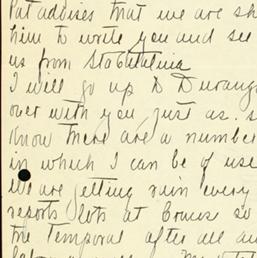 Pat advises that we are sh
him to write you and see
us from Sta Catalina
I will go up to Durango
over with you just as s
know there are a number
in which I can be of use
We are getting rain every
reports lots at Cruces so
the Temporal after all